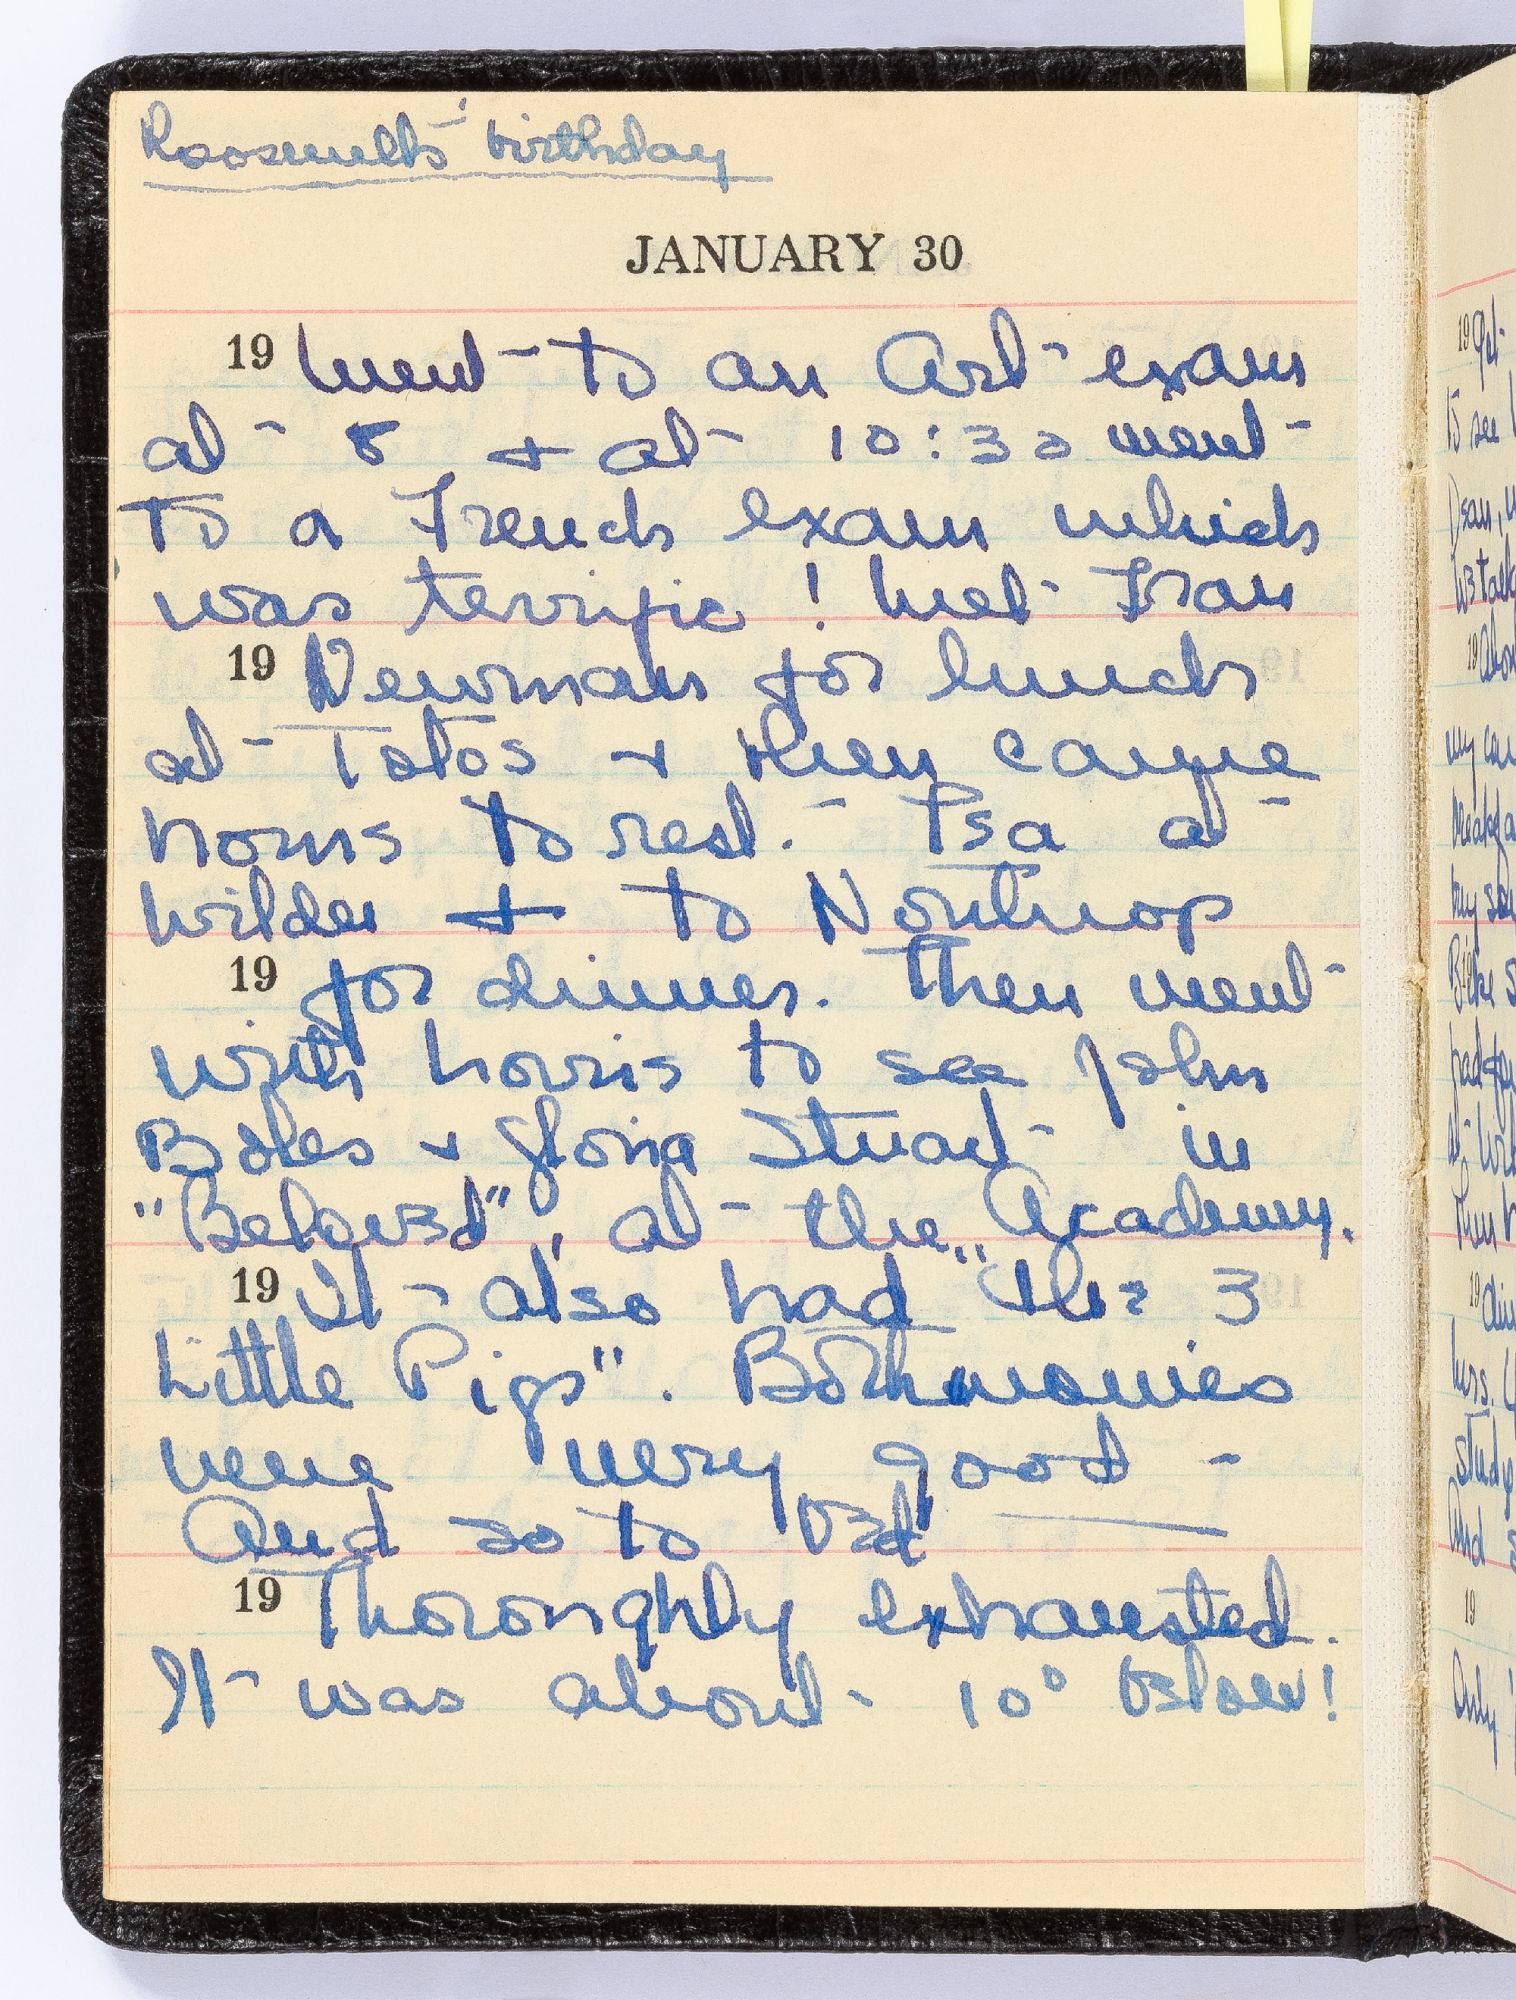 Roosevelt's birthday
JANUARY 30
19 Went to an Art exam
at 8 + at 10:30 went
to a French exam which
was terrific! Met Fran
19 Newman for lunch
at Toto's + then came
home to rest. Tea at
Wilder + to Northrop
19 for dinner. Then went
with Lorris to see John
Boles + Gloria Stuart in
"Beloved", at the Academy.
19 It also had "the 3
Little Pigs". Both movies
were very good -
And so to bed
19 Thoroughly exhausted.
It was about 10° below!
19
19
19
19
Only